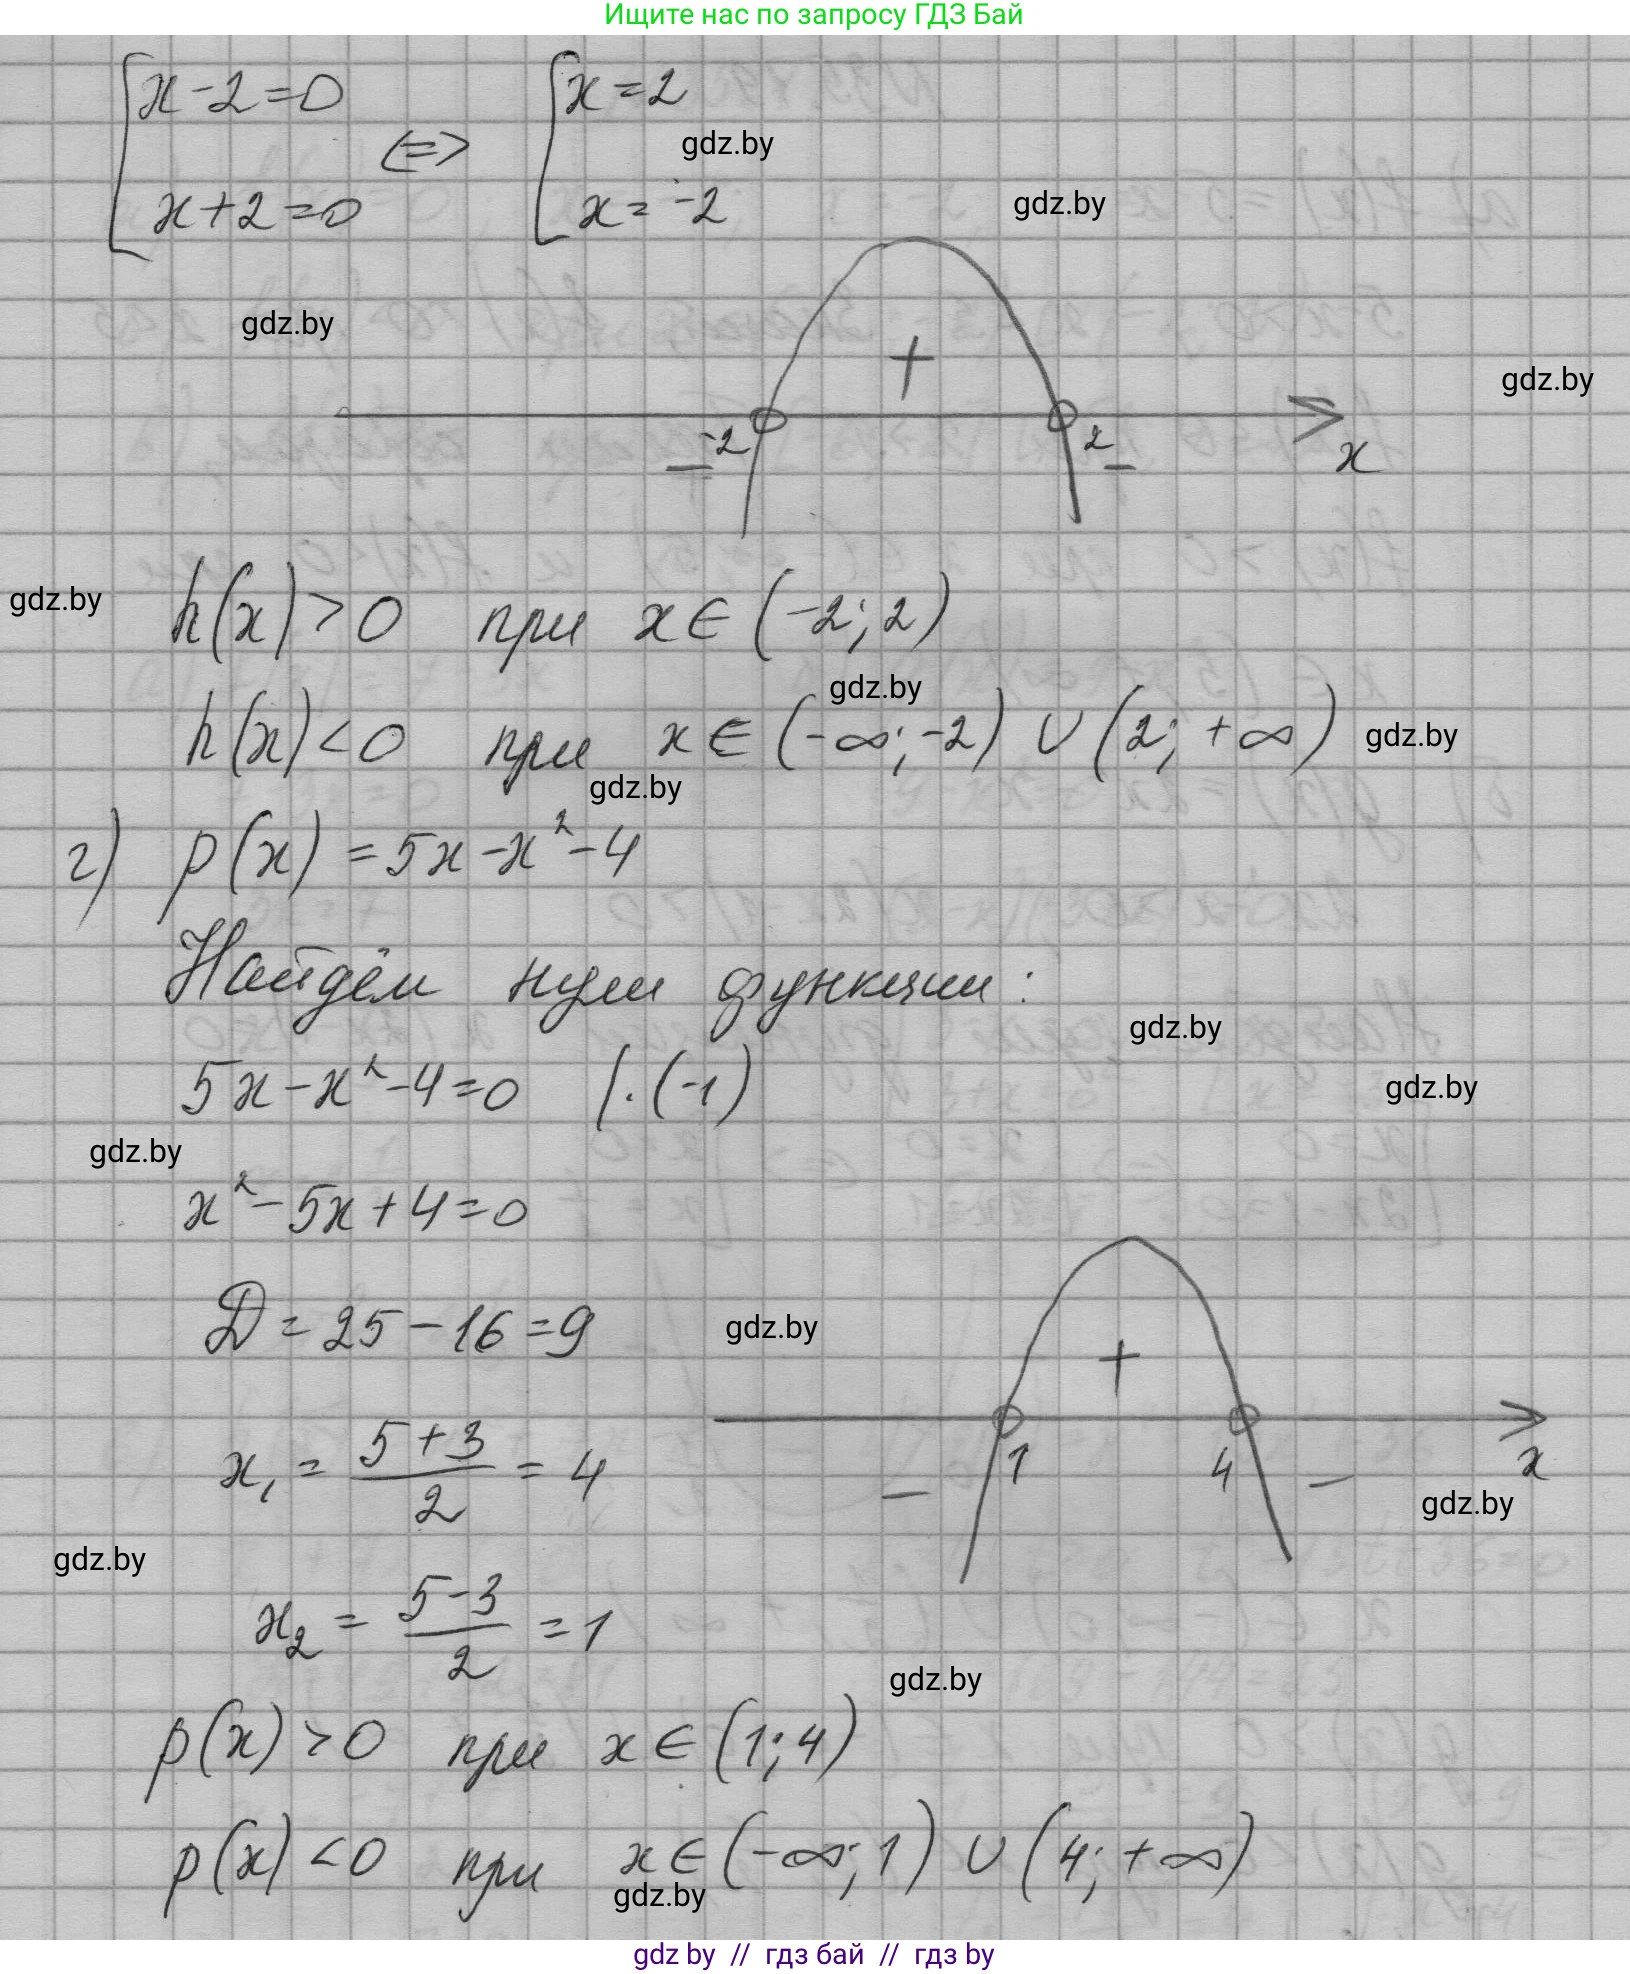 Ищите нас по запросу ГДЗ Бай
[x-2=0 <=> [x=2
gdz.by
x+2=0 x=-2
gdz.by
gdz.by
+
gdz.by
-2 2
- - x
gdz.by
h(x)>0 при x∈(-2;2)
gdz.by
h(x)<0 при x∈(-∞;-2)∪(2;+∞)
gdz.by
gdz.by
г) p(x)=5x-x²-4
Найдём нули функции:
gdz.by
5x-x²-4=0 |·(-1)
gdz.by
gdz.by
x²-5x+4=0
D=25-16=9
gdz.by
+
x₁=(5+3)/2=4
1 4 x
- -
gdz.by
gdz.by
x₂=(5-3)/2=1
gdz.by
p(x)>0 при x∈(1;4)
p(x)<0 при x∈(-∞;1)∪(4;+∞)
gdz.by
gdz by // гдз бай // гдз by